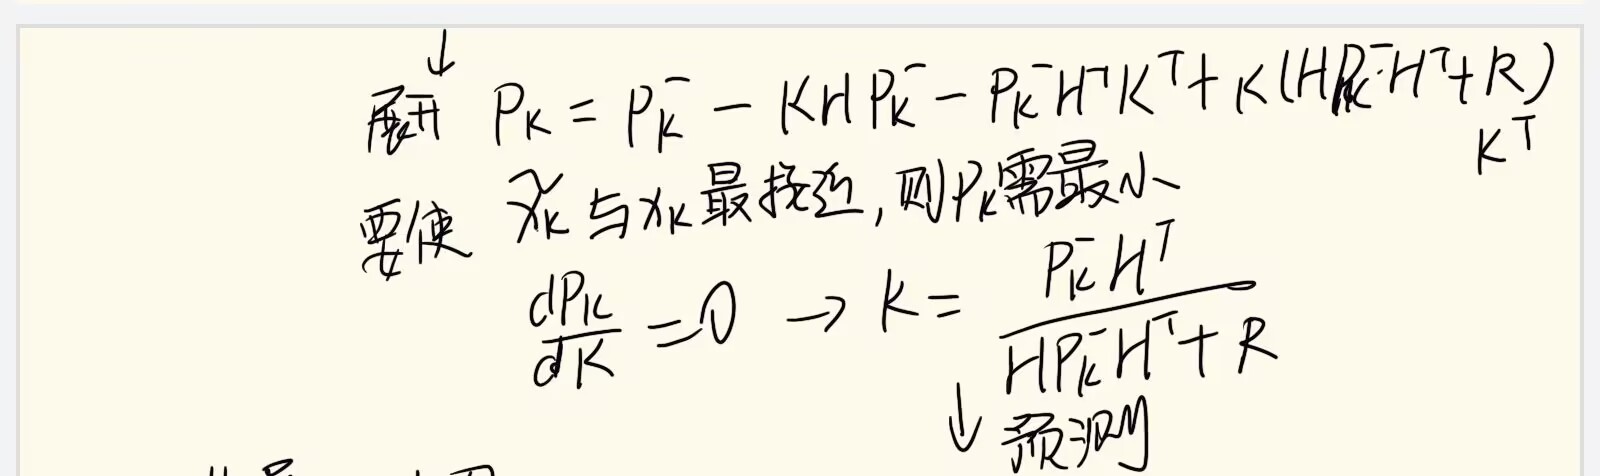 ↓
展开 P_K = P_K^- - KHP_K^- - P_K^-H^TK^T + K(HP_K^-H^T + R)
K^T
要使 x̃_K 与 x_K 最接近,则P_K需最小
dP_K/dK = 0 → K = P_K^-H^T / (HP_K^-H^T + R)
↓ 预测